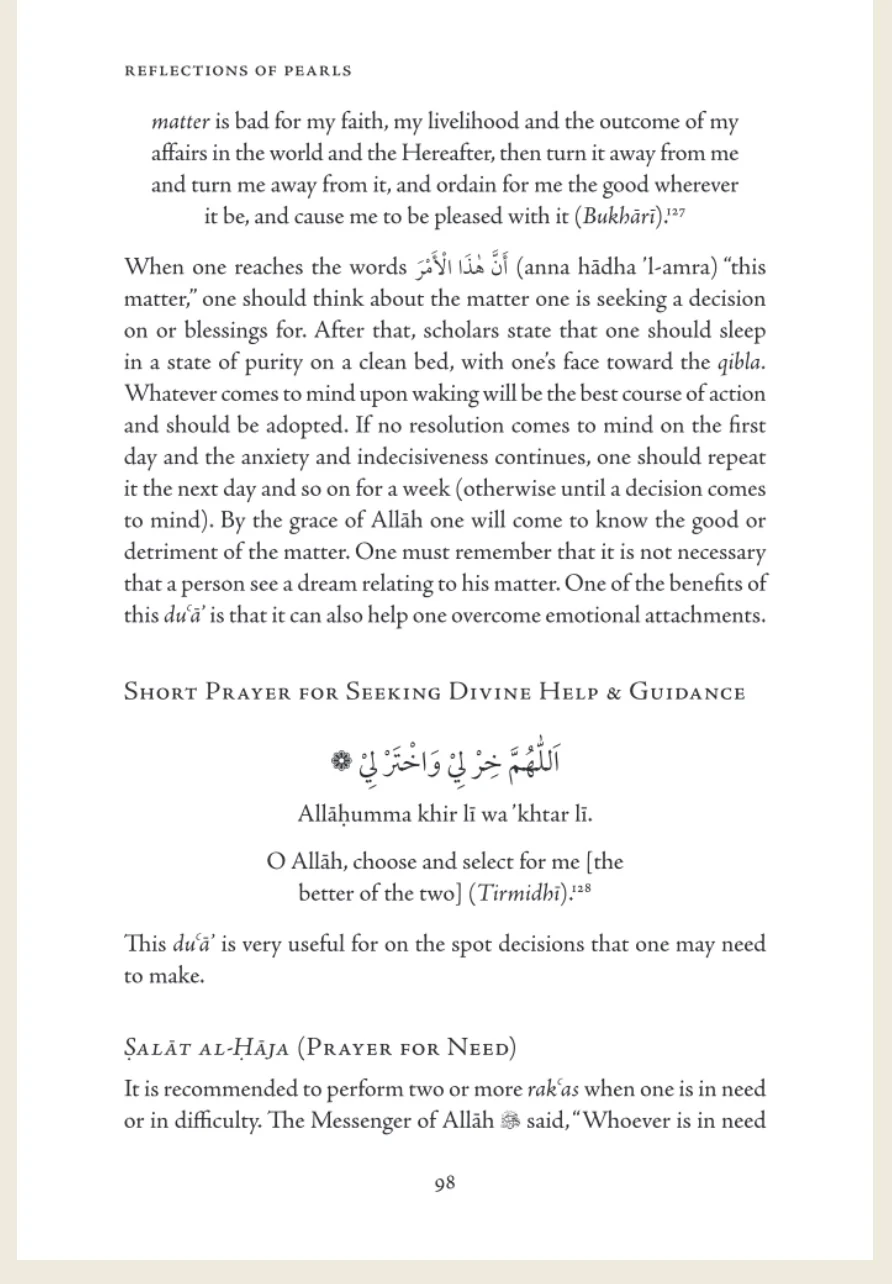 REFLECTIONS OF PEARLS
matter is bad for my faith, my livelihood and the outcome of my
affairs in the world and the Hereafter, then turn it away from me
and turn me away from it, and ordain for me the good wherever
it be, and cause me to be pleased with it (Bukhārī).¹²⁷
When one reaches the words أَنَّ هٰذَا الْأَمْرَ (anna hādha ’l-amra) “this
matter,” one should think about the matter one is seeking a decision
on or blessings for. After that, scholars state that one should sleep
in a state of purity on a clean bed, with one’s face toward the qibla.
Whatever comes to mind upon waking will be the best course of action
and should be adopted. If no resolution comes to mind on the first
day and the anxiety and indecisiveness continues, one should repeat
it the next day and so on for a week (otherwise until a decision comes
to mind). By the grace of Allāh one will come to know the good or
detriment of the matter. One must remember that it is not necessary
that a person see a dream relating to his matter. One of the benefits of
this duʿā’ is that it can also help one overcome emotional attachments.
Short Prayer for Seeking Divine Help & Guidance
اَللّٰهُمَّ خِرْ لِيْ وَاخْتَرْ لِيْ ۞
Allāḥumma khir lī wa ’khtar lī.
O Allāh, choose and select for me [the
better of the two] (Tirmidhī).¹²⁸
This duʿā’ is very useful for on the spot decisions that one may need
to make.
Ṣalāt al-Ḥāja (Prayer for Need)
It is recommended to perform two or more rakʿas when one is in need
or in difficulty. The Messenger of Allāh ﷺ said, “Whoever is in need
98